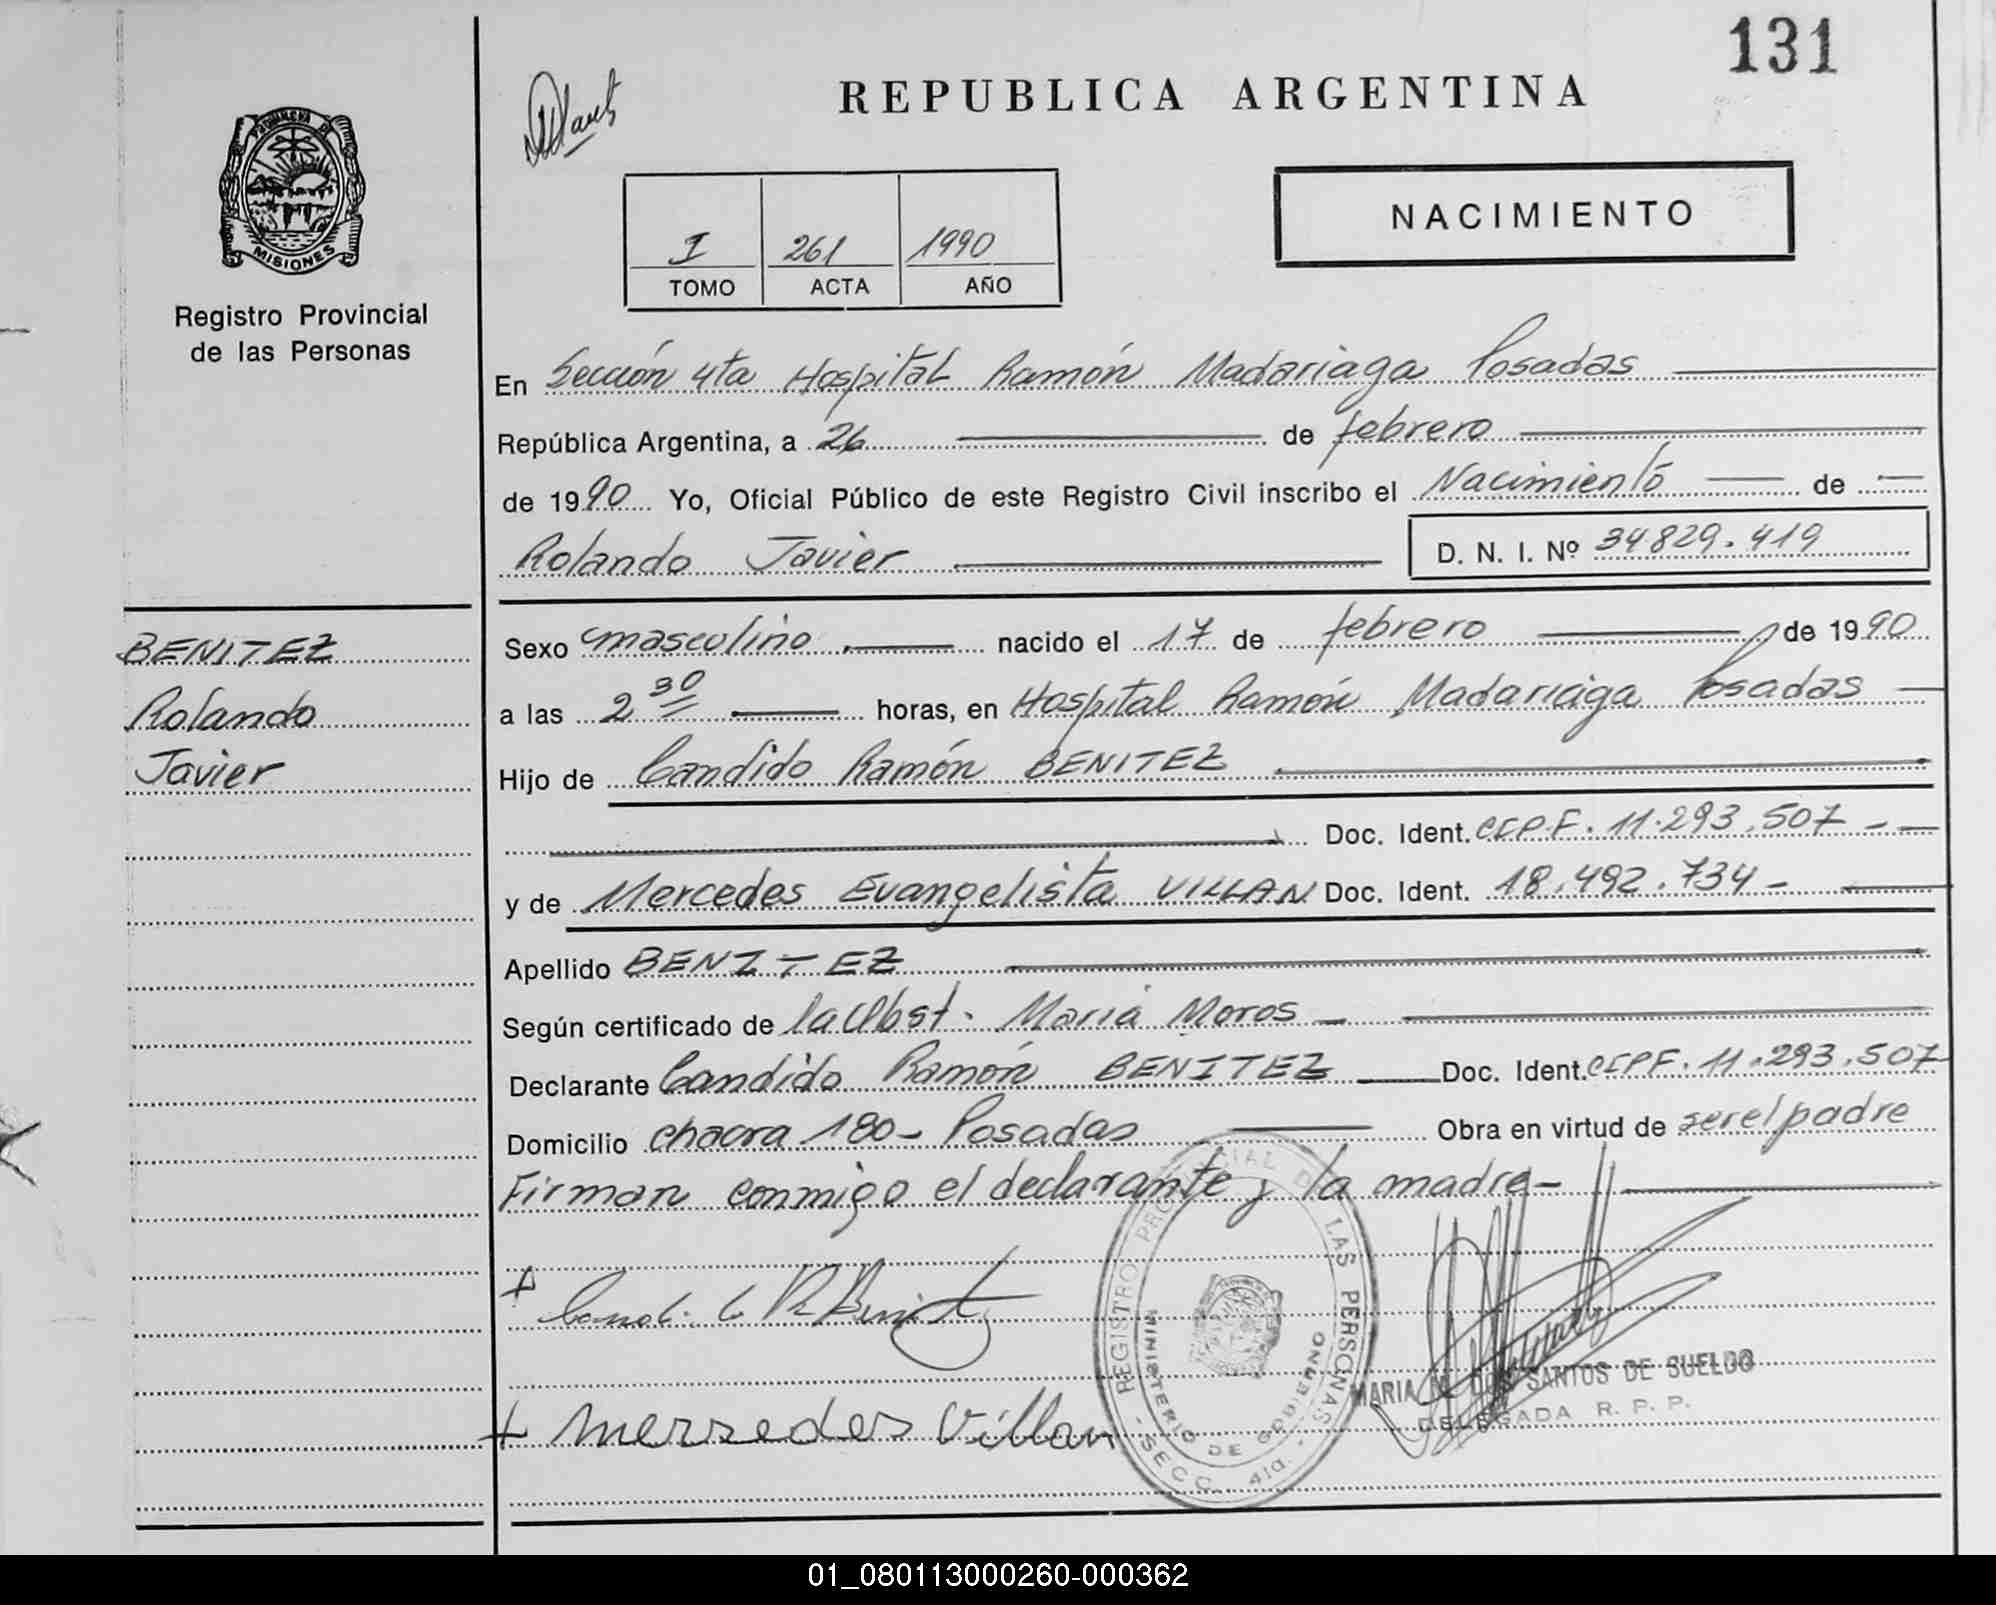 131
REPUBLICA ARGENTINA
PROVINCIA DE
MISIONES
Registro Provincial
de las Personas
NACIMIENTO
I 261 1990
TOMO ACTA AÑO
En Sección 4ta Hospital Ramón Madariaga Posadas
República Argentina, a 26 de febrero
de 1990 Yo, Oficial Público de este Registro Civil inscribo el Nacimiento de
Rolando Javier D. N. I. Nº 34829.419
BENITEZ
Rolando
Javier
Sexo masculino nacido el 17 de febrero de 1990
a las 2 30 horas, en Hospital Ramón Madariaga Posadas
Hijo de Candido Ramón BENITEZ
Doc. Ident. C.I.P.F. 11.293.507
y de Mercedes Evangelista VILLAN Doc. Ident. 18.492.734-
Apellido BENITEZ
Según certificado de la Obst. Maria Moros
Declarante Candido Ramón BENITEZ Doc. Ident. CIPF. 11.293.507
Domicilio chacra 180- Posadas Obra en virtud de ser el padre
Firman conmigo el declarante y la madre-
REGISTRO PROVINCIAL DE LAS PERSONAS
MINISTERIO DE GOBIERNO
- SECC. 4ta. -
+ Mersedes Villan
MARIA DOS SANTOS DE SUELDO
DELEGADA R. P. P.
01_080113000260-000362